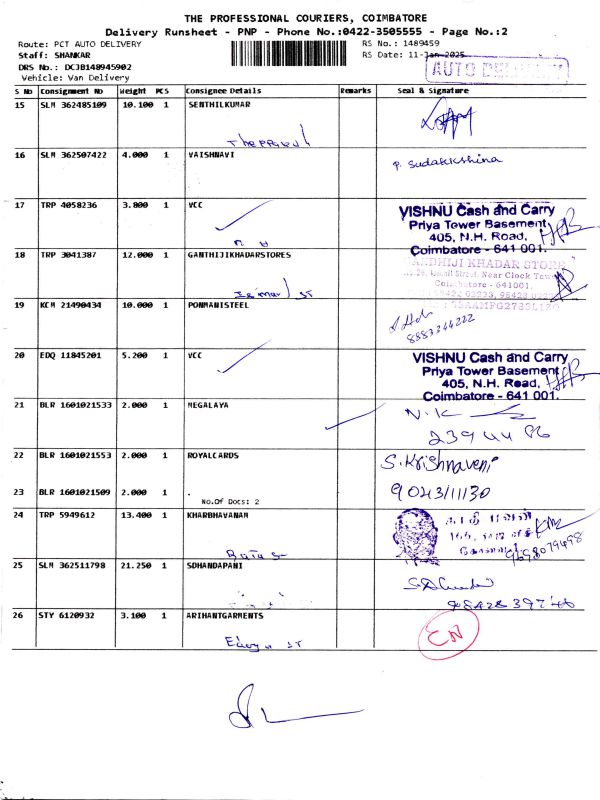 THE PROFESSIONAL COURIERS, COIMBATORE
Delivery Runsheet - PNP - Phone No.:0422-3505555 - Page No.:2
Route: PCT AUTO DELIVERY
RS No.: 1489459
Staff: SHANKAR
RS Date: 11-Jan-2025
AUTO DELIVERY
DRS No.: DCJB148945902
Vehicle: Van Delivery
S No Consignment No Weight PCS Consignee Details Remarks Seal & Signature
15 SLM 362485109 10.100 1 SENTHILKUMAR
16 SLM 362507422 4.000 1 VAISHNAVI
P. Sudakkshina
17 TRP 4058236 3.800 1 VCC
VISHNU Cash and Carry
Priya Tower Basement
405, N.H. Road,
Coimbatore - 641 001.
18 TRP 3041387 12.000 1 GANTHIJIKHADARSTORES
GANDHIJI KHADAR STORE
Near Clock Tower
Coimbatore - 641001.
19 KCM 21490434 10.000 1 PONMANISTEEL
8883344222
20 EDQ 11845201 5.200 1 VCC
VISHNU Cash and Carry
Priya Tower Basement
405, N.H. Road,
Coimbatore - 641 001.
21 BLR 1601021533 2.000 1 MEGALAYA
N.K
22 BLR 1601021553 2.000 1 ROYALCARDS
S. Krishnaveni
23 BLR 1601021509 2.000 1 .
No.Of Docs: 2
9043111130
24 TRP 5949612 13.400 1 KHARBHAVANAM
9698079498
25 SLM 362511798 21.250 1 SDHANDAPANI
26 STY 6120932 3.100 1 ARIHANTGARMENTS
CN